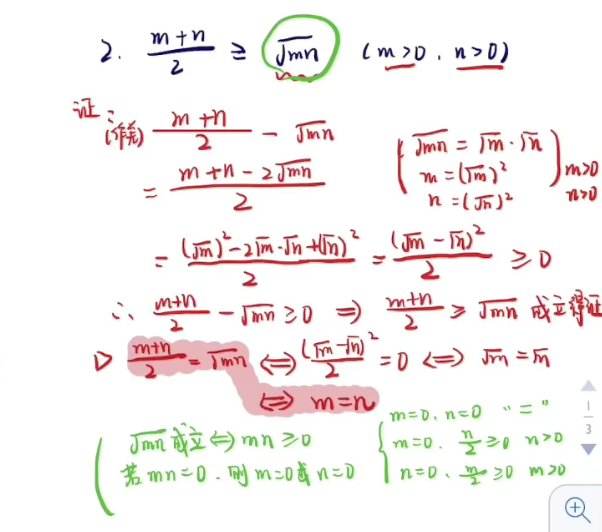 2. (m+n)/2 ≥ √mn (m>0, n>0)
证:
(作差) (m+n)/2 - √mn
= (m+n-2√mn)/2
(√mn = √m·√n
m = (√m)²
n = (√n)²) m>0
n>0
= ((√m)²-2√m·√n+(√n)²)/2 = (√m-√n)²/2 ≥ 0
∴ (m+n)/2 - √mn ≥ 0 ⇒ (m+n)/2 ≥ √mn 成立得证
▷ (m+n)/2 = √mn ⇔ (√m-√n)²/2 = 0 ⇔ √m = √n
⇔ m=n
(√mn 成立 ⇔ mn ≥ 0
若 mn=0, 则 m=0或n=0
{m=0, n=0 "="
m=0, n/2 ≥ 0 n>0
n=0, m/2 ≥ 0 m>0
1
3